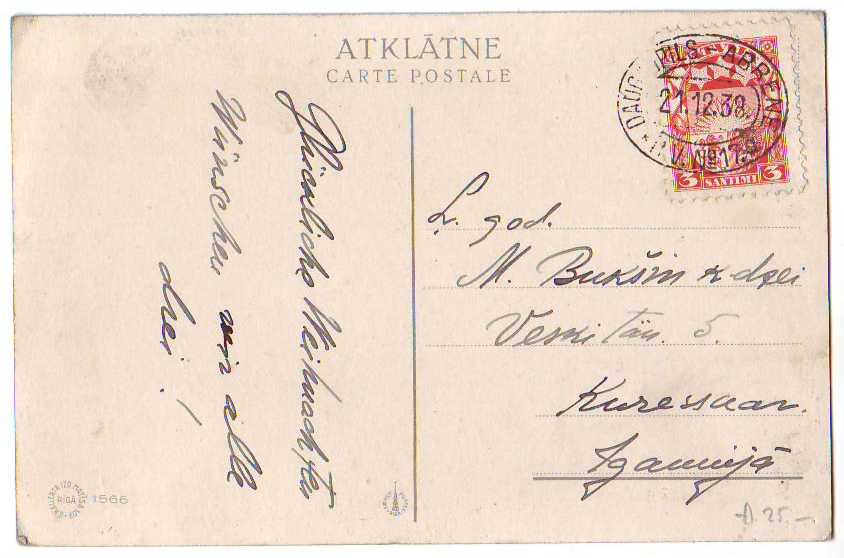 ATKLĀTNE
CARTE POSTALE
Glückliche Weihnachten
wünschen wir alle
drei!
LATVIJA
3 SANTIMI 3
DAUGAVPILS - ABRENE
21.12.38.
P.V. №
L. god.
M. Bukšin k dzei
Veski tän. 5.
Kuressaar.
Igaunijā
RĪGĀ
1566
25.-